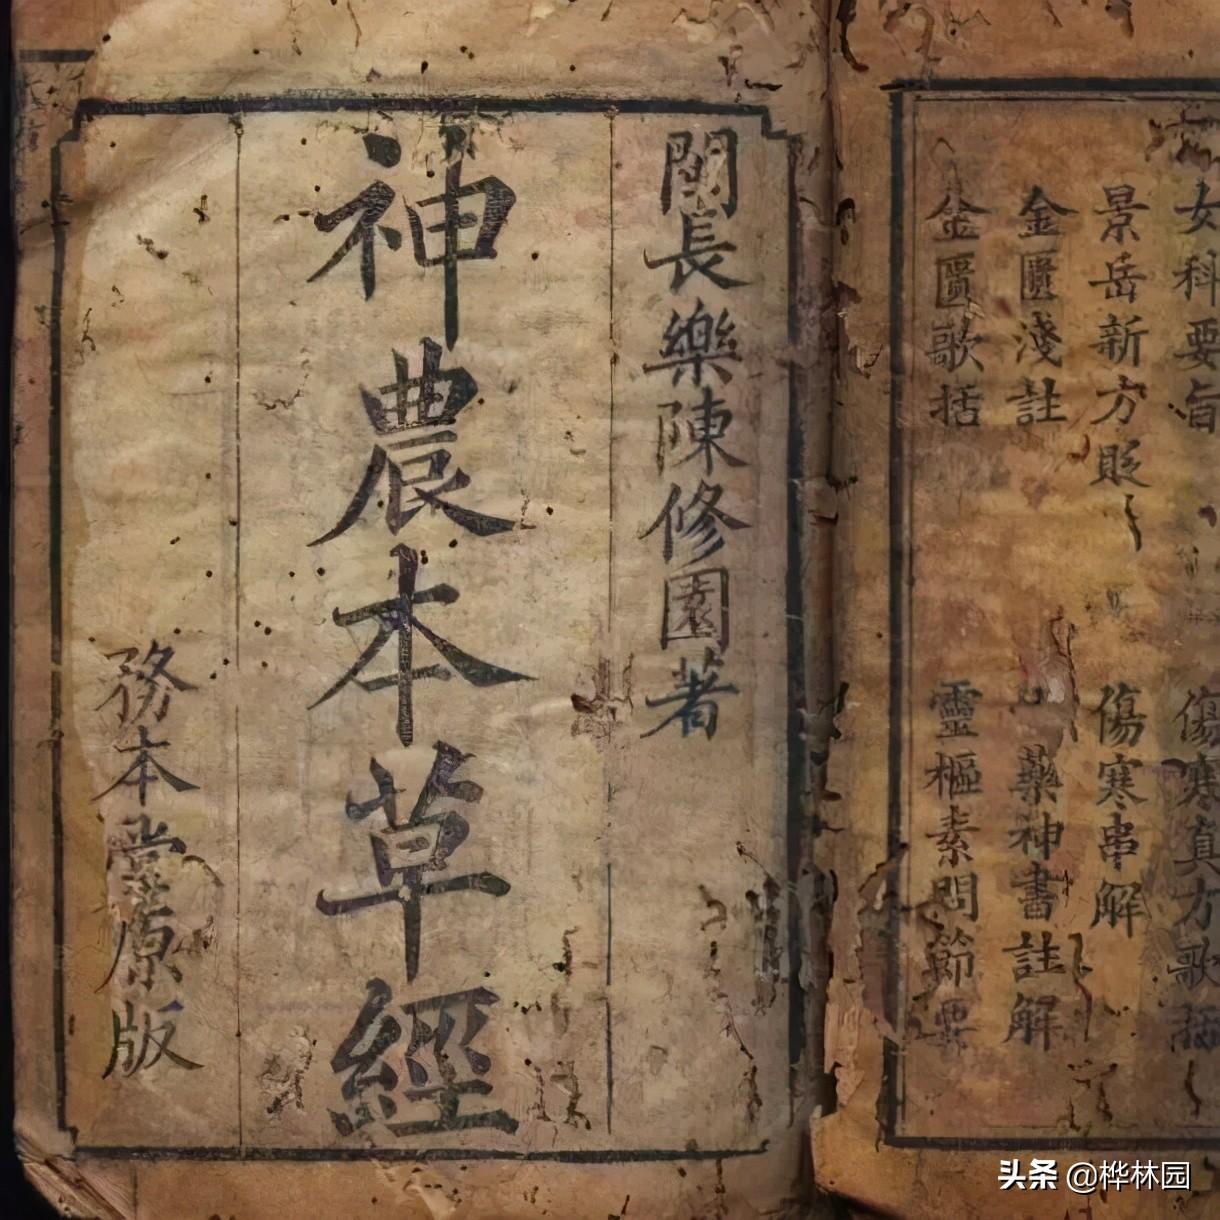 女科要旨
傷寒真方歌括
景岳新方貶
傷寒串解
金匱淺註
藥神書註解
金匱歌括
靈樞素問節要
閩長樂陳修園著
神農本草經
務本堂原版
头条 @桦林园